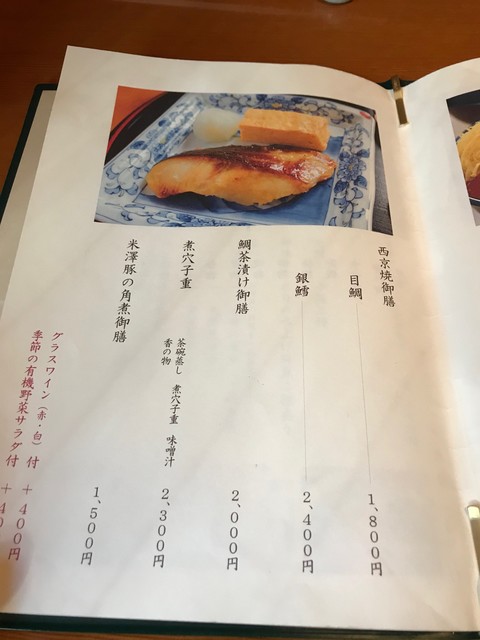 西京焼御膳
目鯛 1,800円
銀鱈 2,400円
鯛茶漬け御膳 2,000円
煮穴子重 2,300円
茶碗蒸し 煮穴子重 味噌汁
香の物
米澤豚の角煮御膳 1,500円
グラスワイン（赤・白）付 ＋400円
季節の有機野菜サラダ付 ＋40